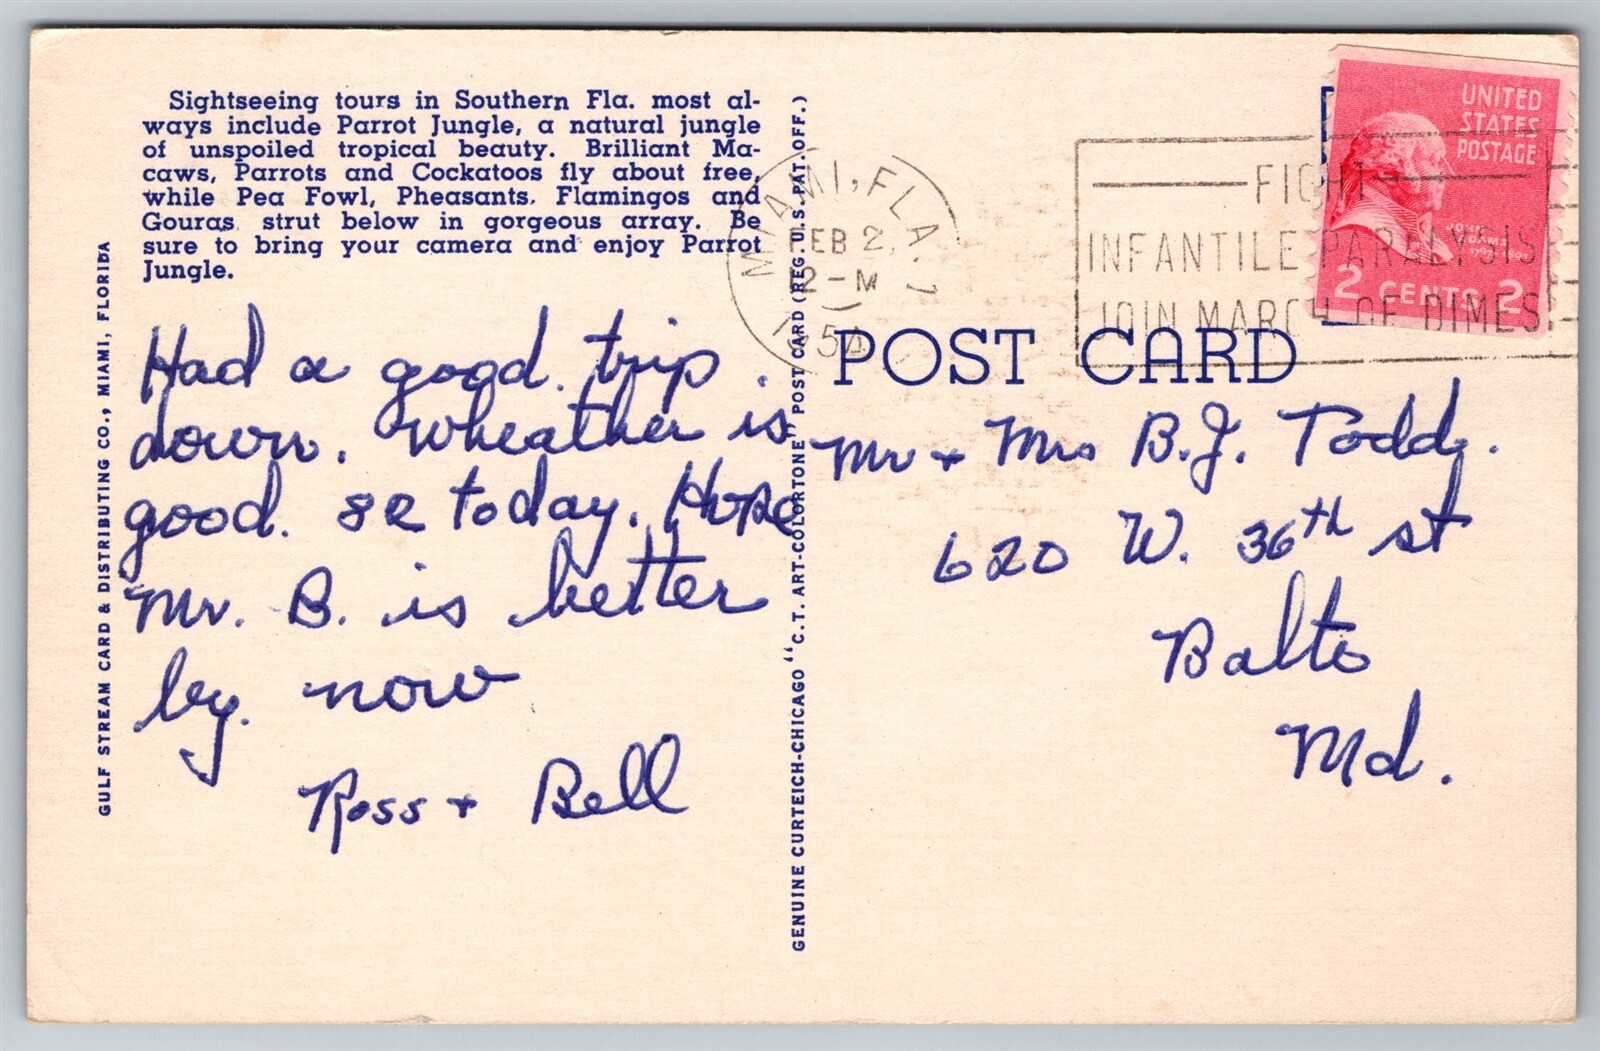 Sightseeing tours in Southern Fla. most al-
ways include Parrot Jungle, a natural jungle
of unspoiled tropical beauty. Brilliant Ma-
caws, Parrots and Cockatoos fly about free,
while Pea Fowl, Pheasants, Flamingos and
Gouras strut below in gorgeous array. Be
sure to bring your camera and enjoy Parrot
Jungle.
GULF STREAM CARD & DISTRIBUTING CO., MIAMI, FLORIDA
Had a good trip.
down. Wheather is
good. 82 today. Hope
Mr. B. is better
by. now
Ross + Bell
GENUINE CURTEICH-CHICAGO "C.T. ART-COLORTONE" POST CARD (REG. U.S. PAT. OFF.)
MIAMI, FLA.
FEB 2
12-M
1954
FIGHT
INFANTILE PARALYSIS
JOIN MARCH OF DIMES
UNITED
STATES
POSTAGE
JOHN
ADAMS
2 CENTS 2
POST CARD
Mr + Mrs B.J. Todd.
620 W. 36th st
Balto
Md.